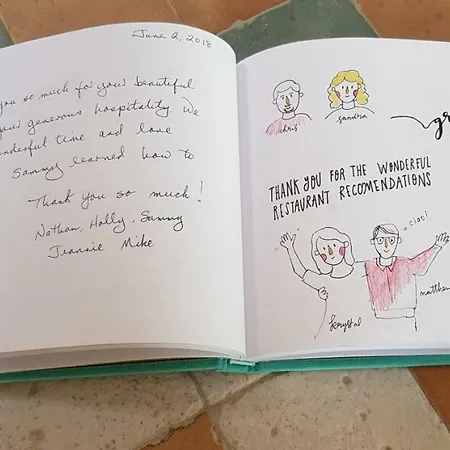 June 2, 2018
you so much for your beautiful
your generous hospitality. We
nderful time and love
Sammy learned how to
Thank you so much!
Nathan, Holly, Sammy
Jeannie Mike
chris
sandra
gr
THANK YOU FOR THE WONDERFUL
RESTAURANT RECOMENDATIONS
ciao!
krystal
matthew